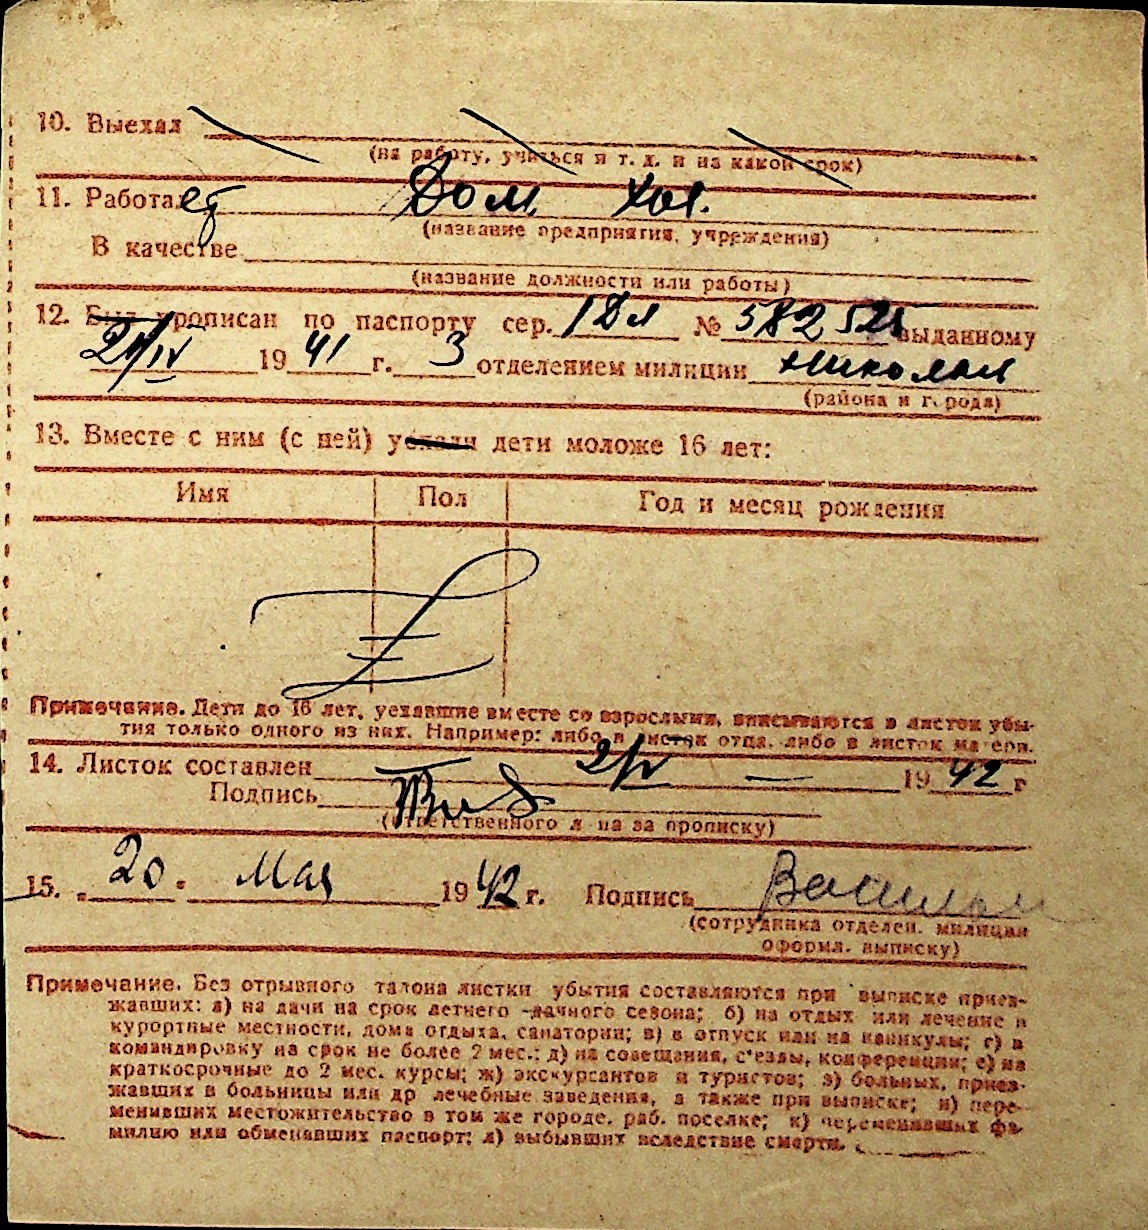 10. Выехал
(на работу, учиться и т. д. и на какой срок)
11. Работает Дом. хоз.
(название предприятия, учреждения)
В качестве
(название должности или работы)
12. Был прописан по паспорту сер. 1 Дл № 582525 выданному
24/IV 19 41 г. 3 отделением милиции
(района и города)
13. Вместе с ним (с ней) уехали дети моложе 16 лет:
Имя Пол Год и месяц рождения
Примечание. Дети до 16 лет, уехавшие вместе со взрослыми, вписываются в листок убы-
тия только одного из них. Например: либо в листок отца, либо в листок матери.
14. Листок составлен 2/V — 19 42 г
Подпись
(ответственного лица за прописку)
15. „20" Мая 19 42 г. Подпись
(сотрудника отделен. милиции
оформ. выписку)
Примечание. Без отрывного талона листки убытия составляются при выписке приез-
жавших: а) на дачи на срок летнего дачного сезона; б) на отдых или лечение в
курортные местности, дома отдыха, санатории; в) в отпуск или на каникулы; г) в
командировку на срок не более 2 мес.; д) на совещания, с'езды, конференции; е) на
краткосрочные до 2 мес. курсы; ж) экскурсантов и туристов; з) больных, приез-
жавших в больницы или др лечебные заведения, а также при выписке; и) пере-
менивших местожительство в том же городе, раб. поселке; к) переменивших фа-
милию или обменявших паспорт; л) выбывших вследствие смерти.